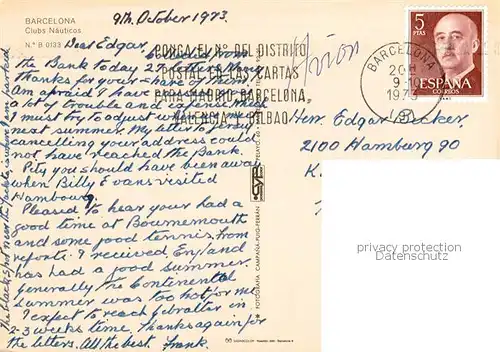 BARCELONA
Clubs Náuticos.
N.º B 0133
9th. October 1973.
Dear Edgar,
Collected from
the Bank today 2 letters. Many
thanks for your share of them.
Am afraid I have put you to
a lot of trouble and expense. Much
I must try to adjust when we meet
next summer. My letter to Jersey
cancelling your address could
not have reached the Bank.
Pity you should have been away
when Billy Evans visited
Hambourg.
Pleased to hear you had a
good time at Bournemouth
and some good tennis. From
reports I received England
has had a good summer.
Generally the Continental
summer was too hot for me.
I expect to reach Gibralter in
2-3 weeks time. Thanks again for
the letters. All the best Frank.
The black spot near the Yachts is where I am parked
PONGA EL Nº DEL DISTRITO
POSTAL EN LAS CARTAS
PARA MADRID, BARCELONA,
VALENCIA Y BILBAO
Avion
BARCELONA
20H
9-10
1973
5
PTAS
ESPAÑA
CORREOS
Herr. Edgar
2100 Hamburg 90
FOTOGRAFIA CAMPAÑA-PUIG-FERRAN
privacy protection
Datenschutz.